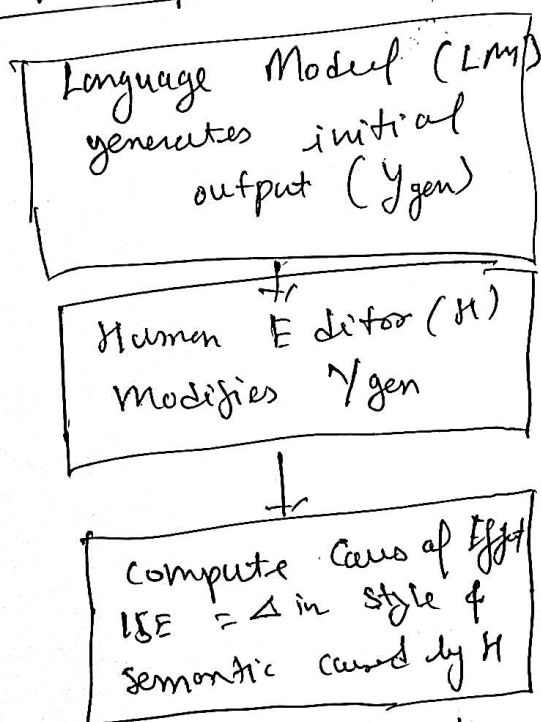 Language Model (LM)
generates initial
output (Ygen)
Human Editor (H)
Modifies Ygen
Compute Causal Effect
= Δ in style &
semantic caused by H